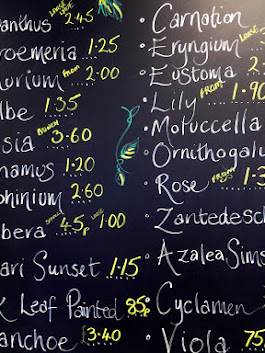 anthus LARGE 2.45
roemeria 1.25
hurium FROM 2.00
lbe 1.35
sia BUNCH 3.60
hamus 1.20
phinium 2.60
bera SMALL 45p LARGE 1.00
ari Sunset 1.15
K Leaf Painted 85p
anchoe £3.40
• Carnation
• Eryngium LARGE
• Eustoma 2.
• Lily FROM 1.90
• Molluccella
• Ornithogalu
• Rose FROM 1.3
• Zantedesch
• Azalea Sims
• Cyclamen
• Viola 75